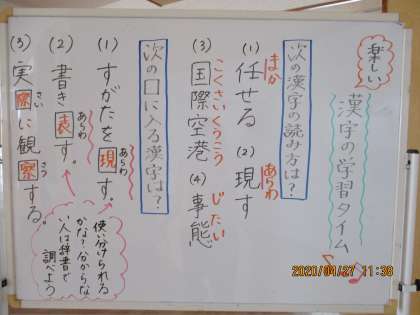 楽しい
漢字の学習タイム
次の漢字の読み方は?
(1) 任せる (2) 現す
まか あらわ
(3) 国際空港 (4) 事態
こくさいくうこう じたい
次の□に入る漢字は?
(1) すがたを現す。
あらわ
(2) 書き表す。
あらわ
(3) 実際に観察する。
さい さつ
使い分けられる
かな?分からな
い人は辞書で
調べよう
2020/04/27 11:38